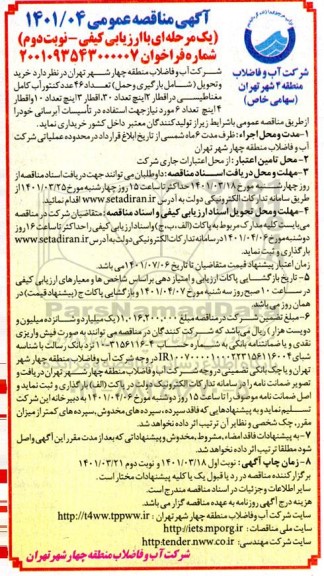 آگهی مناقصه عمومی ۱۴۰۱/۰۴
(یک مرحله‌ای با ارزیابی کیفی - نوبت دوم)
شماره فراخوان ۲۰۰۱۰۹۳۵۴۳۰۰۰۰۰۷
شرکت آب و فاضلاب
منطقه ۴ شهر تهران
(سهامی خاص)
شرکت آب و فاضلاب منطقه چهار شهر تهران در نظر دارد خرید
و تحویل (شامل بارگیری و حمل) تعداد ۴۶ عدد کنتور آب کامل
مغناطیسی در اقطار ۲ اینچ تعداد ۳۰، اقطار ۳ اینچ تعداد ۱۰ و اقطار
۴ اینچ تعداد ۶ مورد نیاز جهت استفاده در تأسیسات آبرسانی خود را
از طریق مناقصه عمومی با شرایط زیر از تولیدکنندگان معتبر داخل کشور خریداری نماید.
۱- مدت و محل اجراء: ظرف مدت ۶ ماه شمسی از تاریخ ابلاغ قرارداد در محدوده عملیاتی شرکت
آب و فاضلاب منطقه چهار شهر تهران
۲- محل تامین اعتبار: از محل اعتبارات جاری شرکت
۳- مهلت و محل دریافت اسناد مناقصه: داوطلبان می توانند جهت دریافت اسناد مناقصه از
روز چهارشنبه مورخ ۱۴۰۱/۰۳/۱۸ حداکثر تا ساعت ۱۵ روز چهارشنبه مورخ ۱۴۰۱/۰۳/۲۵ از
طریق سامانه تدارکات الکترونیکی دولت به آدرس www.setadiran.ir اقدام نمائید.
۴- مهلت و محل تحویل اسناد ارزیابی کیفی و اسناد مناقصه: متقاضیان شرکت در مناقصه
می بایست کلیه مدارک مربوط به پاکات (الف، ب، ج) و اسناد ارزیابی کیفی را حداکثر تا ساعت ۱۶ روز
دوشنبه مورخ ۱۴۰۱/۰۴/۰۶ در سامانه تدارکات الکترونیکی دولت به آدرس www.setadiran.ir
بارگذاری و ثبت نماید.
زمان اعتبار پیشنهاد قیمت متقاضیان تا تاریخ ۱۴۰۱/۰۷/۰۶ می باشد.
۵- تاریخ بازگشایی پاکات ارزیابی و امتیازدهی براساس شاخص ها و معیارهای ارزیابی کیفی
در ساعت ۱۰ صبح روز سه شنبه مورخ ۱۴۰۱/۰۴/۰۷ و بازگشایی پاکات ج (پیشنهاد قیمت) در
همان روز می باشد.
۶- مبلغ تضمین شرکت در مناقصه
نقدی و یا ضمانتنامه بانکی به شماره حساب
تهران و یا چک بانکی تضمینی در وجه شرکت آب و فاضلاب منطقه چهار شهر تهران دریافت و
تصویر ضمانت نامه را در سامانه تدارکات الکترونیک دولت در پاکت (الف) بارگذاری و ثبت نماید و
اصل ضمانت نامه موصوف را تا ساعت ۱۵ روز دوشنبه مورخ ۱۴۰۱/۰۴/۰۶ به دبیرخانه این شرکت
تسلیم نماید و به پیشنهادهایی که فاقد سپرده، سپرده های مخدوش، سپرده های کمتر از میزان
مقرر، چک شخصی و نظایر آن ترتیب اثر داده نخواهد شد.
۷- به پیشنهادات فاقد امضاء، مشروط، مخدوش و پیشنهاداتی که بعد از مدت مقرر این آگهی واصل
شود مطلقا ترتیب اثر داده نخواهد شد.
۸- زمان چاپ آگهی: نوبت اول ۱۴۰۱/۰۳/۱۸ و نوبت دوم ۱۴۰۱/۰۳/۲۱
برگزار کننده مناقصه در رد یا قبول یک یا کلیه پیشنهادات مختار است.
سایر اطلاعات و جزئیات در اسناد مناقصه مندرج است.
هزینه درج آگهی روزنامه به عهده مناقصه گزار می باشد.
سایت شرکت آب و فاضلاب منطقه چهار شهر تهران: http://t4ww.tppww.ir
سایت ملی مناقصات: http://iets.mporg.ir
سایت شرکت مهندسی: http:tender.nww.co.ir
شرکت آب و فاضلاب منطقه چهار شهر تهران